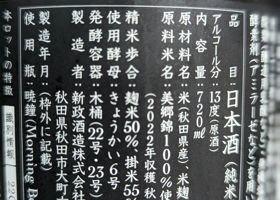 酵素剤(アミラーゼなど)を用い
品目 日本酒(純米
アルコール分 13度(原酒)
内容量 720ml
原材料名 米(秋田県産)、米麹
原料米名 美郷錦100%使
(2022年収穫 秋
精米歩合 麹米50%、掛米55%
使用酵母 きょうかい6号
発酵容器 木桶(22号・23号)
製造者 新政酒造株式会社
秋田県秋田市大町
製造年月 (枠外に記載)
使用瓶 暁鐘(Morning Be
本ロットの特徴
識別情報